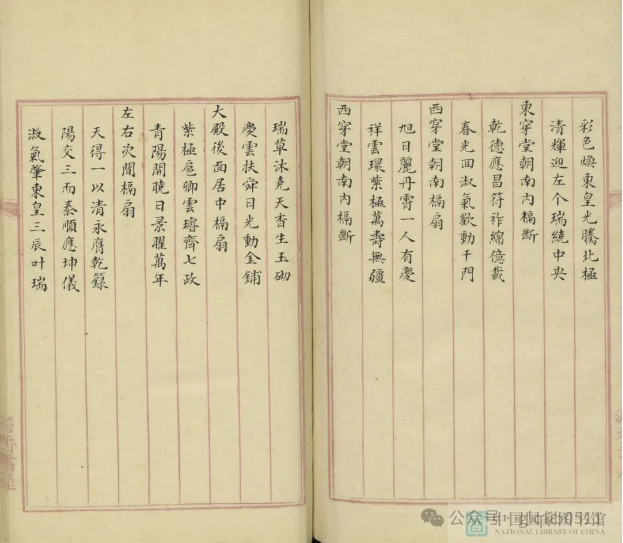 彩色煥東皇光騰北極
清輝迎左个瑞繞中央
東穿堂朝南内槅斷
乾德應昌符祚綿億載
春光回淑氣歡動千門
西穿堂朝南槅扇
旭日麗丹霄一人有慶
祥雲環紫極萬壽無疆
西穿堂朝南内槅斷
瑞草沐堯天香生玉砌
慶雲扶舜日光動金鋪
大殿後面居中槅扇
紫極扈卿雲璿齊七政
青陽開曉日景曜萬年
左右次間槅扇
天得一以清永膺乾籙
陽交三而泰順應坤儀
淑氣肇東皇三辰叶瑞
公众号
中国国家图书馆
NATIONAL LIBRARY OF CHINA